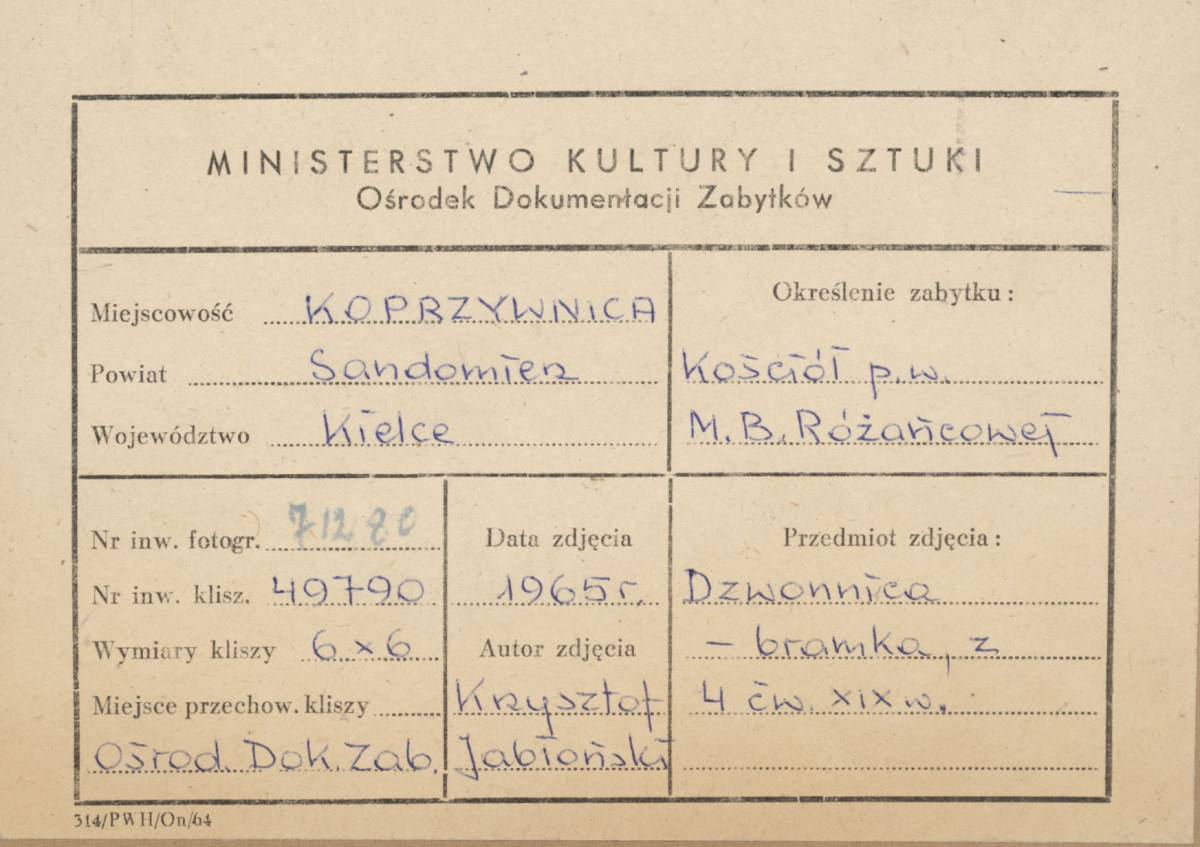 MINISTERSTWO KULTURY I SZTUKI
Ośrodek Dokumentacji Zabytków
Miejscowość KOPRZYWNICA
Powiat Sandomierz
Województwo Kielce
Określenie zabytku:
Kościół p.w.
M.B. Różańcowej
Nr inw. fotogr. 71280
Nr inw. klisz. 49790
Wymiary kliszy 6 x 6
Miejsce przechow. kliszy
Ośrod. Dok. Zab.
Data zdjęcia
1965 r.
Autor zdjęcia
Krzysztof
Jabłoński
Przedmiot zdjęcia:
Dzwonnica
– bramka, z
4 ćw. XIX w.
314/PWH/On/64